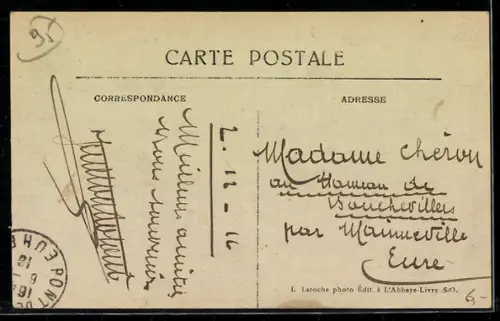 95
CARTE POSTALE
CORRESPONDANCE
ADRESSE
2. 12 - 16
Meilleures amitiés
Madame Chéron
au Hameau de
Bouchevillers
par Mainneville
Eure
PONT
L. Laroche photo Édit. à L'Abbaye-Livry (S.-O.)
6,-